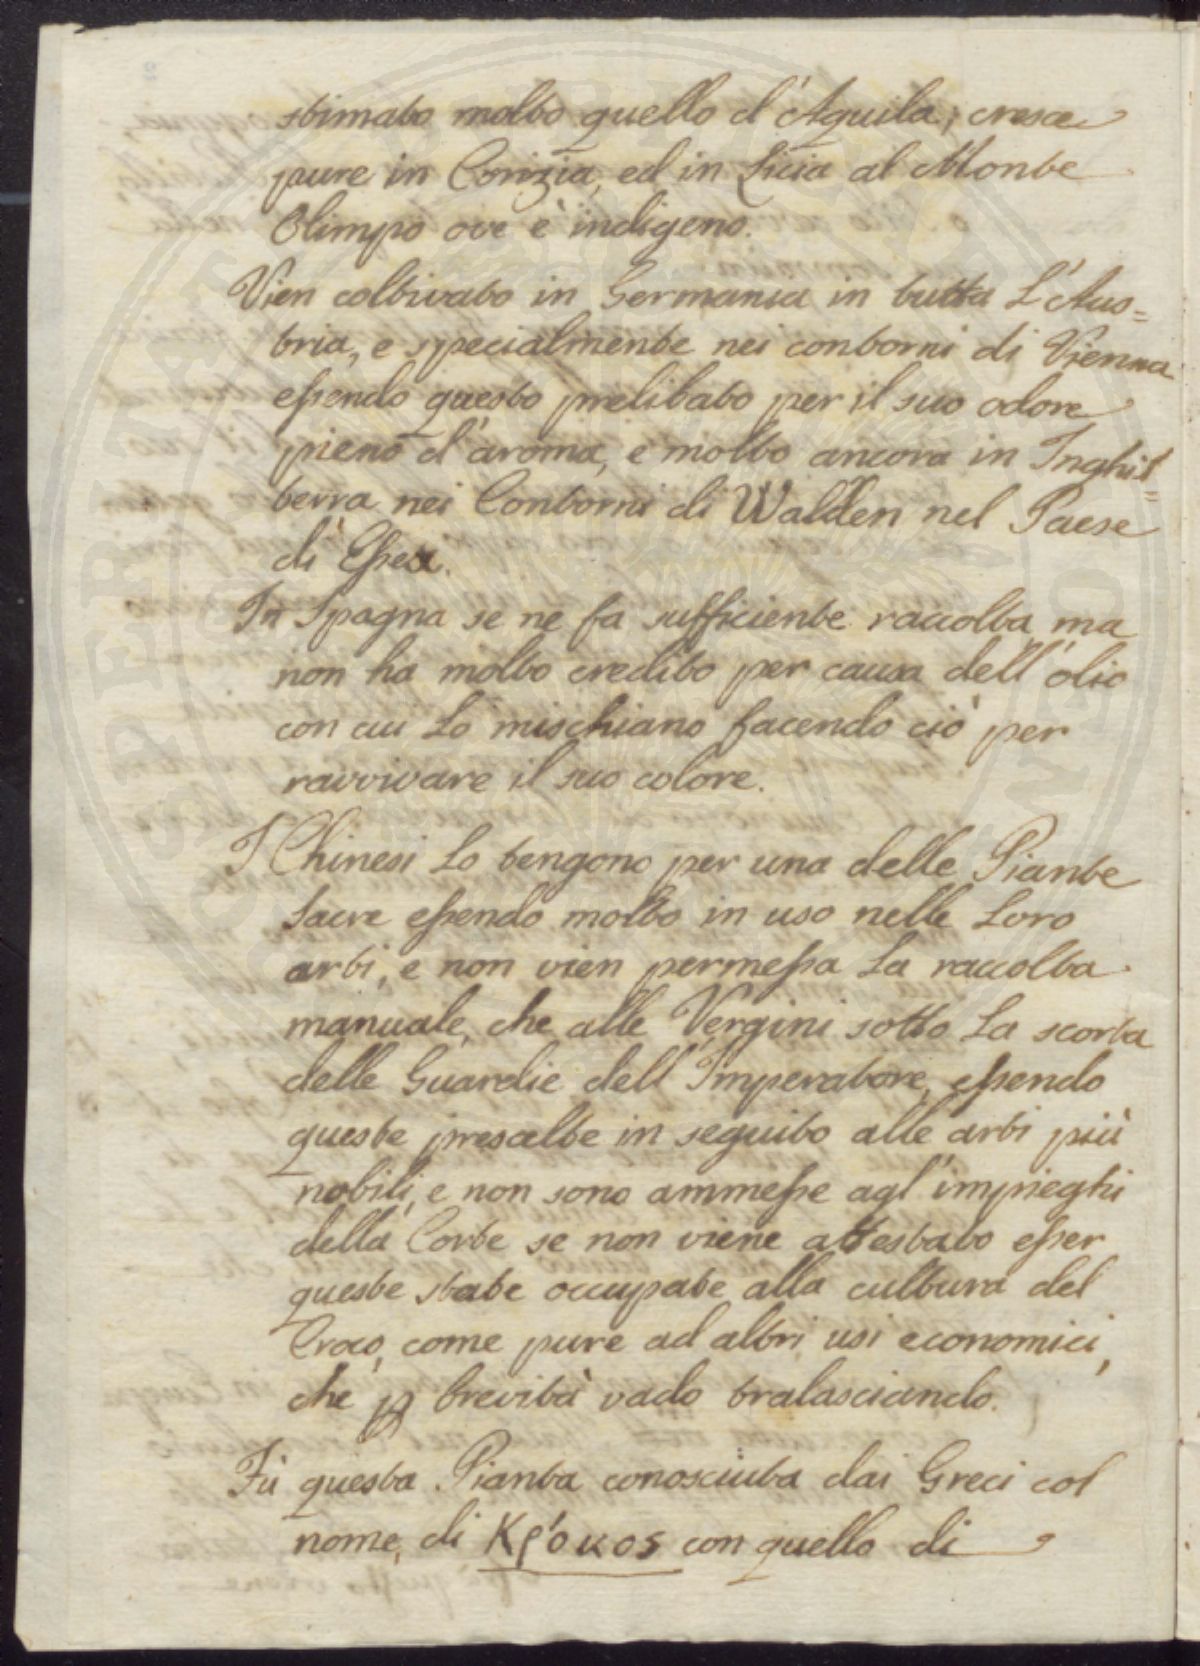 stimato molto quello d'Aquila; cresce
pure in Corizia, ed in Licia al Monte
Olimpo ove è indigeno.
Vien coltivato in Germania in tutta L'Aus=
tria, e specialmente nei contorni di Vienna
essendo questo prelibato per il suo odore
pieno d'aroma, e molto ancora in Inghil=
terra nei Contorni di Walden nel Paese
di Essex.
In Spagna se ne fa sufficiente raccolta ma
non ha molto credito per causa dell'olio
con cui Lo mischiano facendo ciò per
ravvivare il suo colore.
I Chinesi Lo tengono per una delle Piante
Sacre essendo molto in uso nelle Loro
arti, e non vien permessa La raccolta
manuale, che alle Vergini sotto La scorta
delle Guardie dell'Imperatore, essendo
queste prescelte in seguito alle arti più
nobili, e non sono ammesse agl'impieghi
della Corte se non viene attestato esser
queste state occupate alla cultura del
Croco, come pure ad altri usi economici,
che p brevità vado tralasciando.
Fù questa Pianta conosciuta dai Greci col
nome, di Κρόκος con quello di